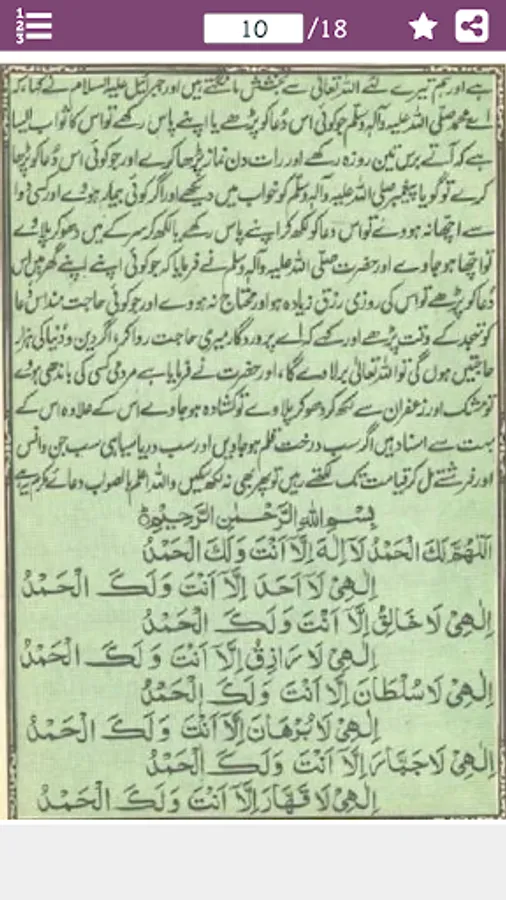 10 /18
ہے اور ہم تیرے لئے اللہ تعالیٰ سے بخشش مانگتے ہیں اور جبرائیل علیہ السلام نے کہا کہ
اے محمد صلی اللہ علیہ وآلہ وسلم جو کوئی اس دُعا کو پڑھے یا اپنے پاس رکھے تو اس کا ثواب ایسا
ہے کہ آتے برس تین روزہ رکھے اور رات دن نماز پڑھا کرے اور جو کوئی اس دُعا کو پڑھا
کرے تو گویا پیغمبر صلی اللہ علیہ وآلہ وسلم کو خواب میں دیکھے اور اگر کوئی بیمار ہووے اور کسی دوا
سے اچھا نہ ہووے تو اس دعا کو لکھ کر اپنے پاس رکھے یا لکھ کر سرکے میں دھو کر پلاوے
تو اچھا ہو جاوے اور حضرت صلی اللہ علیہ وآلہ وسلم نے فرمایا کہ جو کوئی اپنے اپنے گھر میں اس
دُعا کو پڑھے تو اس کی روزی رزق زیادہ ہو اور محتاج نہ ہووے اور جو کوئی حاجت مند اس دعا
کو تہجد کے وقت پڑھے اور کہے کہ اے پروردگار میری حاجت روا کر، اگر دین و دُنیا کی ہزار
حاجتیں ہوں گی تو اللہ تعالیٰ برلاوے گا، اور حضرت نے فرمایا ہے مردمی کسی کی باندھی ہوئے
تو مشک اور زعفران سے لکھ کر دھو کر پلاوے تو کشادہ ہو جاوے اس کے علاوہ اس کے
بہت سے اسناد ہیں اگر سب درخت قلم ہو جاویں اور سب دریا سیاہی سب جن و انس
اور فرشتے مل کر قیامت تک لکھتے رہیں تو پھر بھی نہ لکھ سکیں واللہ اعلم بالصواب دعائے مکرم یہ ہے
بِسْمِ اللهِ الرَّحْمٰنِ الرَّحِيْمِ
اَللّٰهُمَّ لَكَ الْحَمْدُ لَا اِلٰهَ اِلَّا اَنْتَ وَلَكَ الْحَمْدُ
اِلٰهِيْ لَا اَحَدَ اِلَّا اَنْتَ وَلَكَ الْحَمْدُ
اِلٰهِيْ لَا خَالِقُ اِلَّا اَنْتَ وَلَكَ الْحَمْدُ
اِلٰهِيْ لَا رَازِقُ اِلَّا اَنْتَ وَلَكَ الْحَمْدُ
اِلٰهِيْ لَا سُلْطَانَ اِلَّا اَنْتَ وَلَكَ الْحَمْدُ
اِلٰهِيْ لَا بُرْهَانَ اِلَّا اَنْتَ وَلَكَ الْحَمْدُ
اِلٰهِيْ لَا جَبَّارَ اِلَّا اَنْتَ وَلَكَ الْحَمْدُ
اِلٰهِيْ لَا قَهَّارَ اِلَّا اَنْتَ وَلَكَ الْحَمْدُ